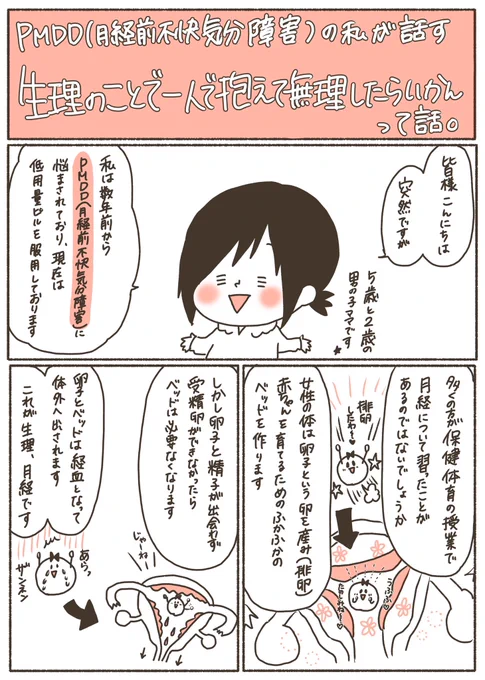 PMDD(月経前不快気分障害)の私が話す
生理のことで一人で抱えて無理したらいかん
って話。
皆様こんにちは
突然ですが
5歳と2歳の
男の子ママです
私は数年前から
PMDD(月経前不快気分障害)に
悩まされており、現在は
低用量ピルを服用しております
多くの方が保健体育の授業で
月経について習たことが
あるのではないでしょうか
排卵
したわよ〜
女性の体は卵子という卵を産み(排卵
赤ちゃんを育てるためのふかふかの
ベッドを作ります
うふふ
しかし卵子と精子が出会わず
受精卵ができなかったら
ベッドは必要なくなります
じゃーね
卵子とベッドは経血となって
体外へ出されます
これが生理、月経です
あら、
ザンネン